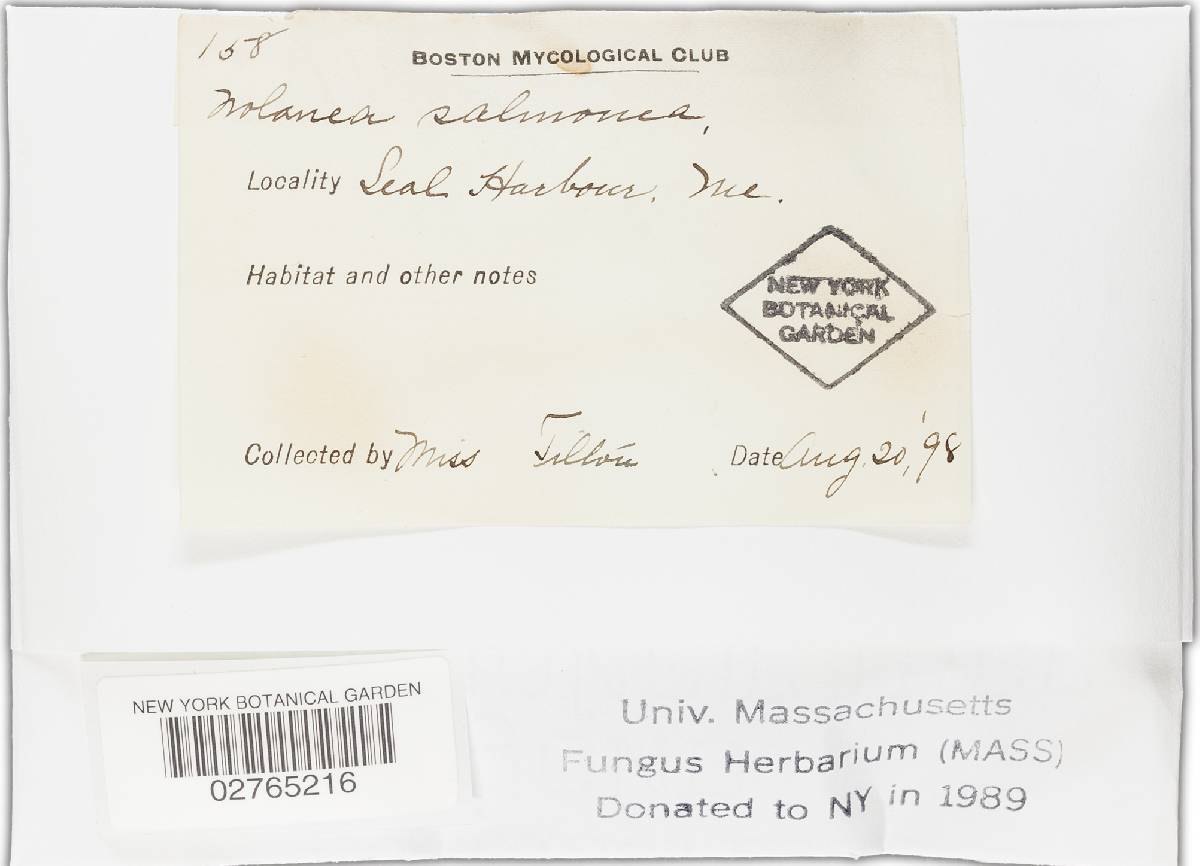 158
BOSTON MYCOLOGICAL CLUB
Nolanea salmonea,
Locality Seal Harbour, Me.
Habitat and other notes
NEW YORK
BOTANICAL
GARDEN
Collected by Miss Tilton Date Aug. 20, '98
NEW YORK BOTANICAL GARDEN
02765216
Univ. Massachusetts
Fungus Herbarium (MASS)
Donated to NY in 1989